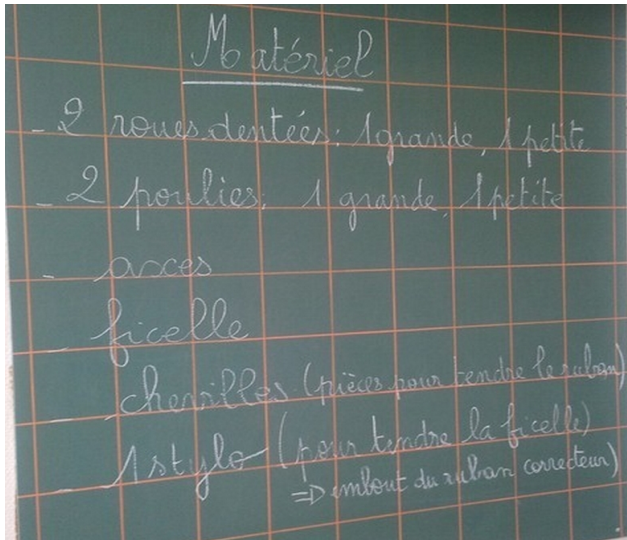 Matériel
- 2 roues dentées: 1 grande, 1 petite
- 2 poulies: 1 grande, 1 petite
- axes
- ficelle
- chevilles (pièces pour tendre le ruban)
- 1 stylo (pour tendre la ficelle)
=> embout du ruban correcteur)